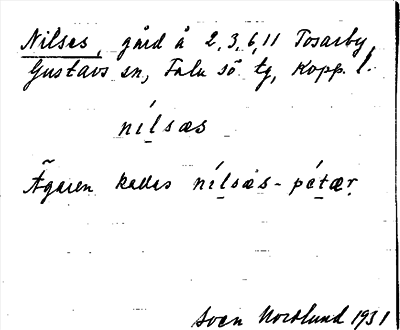 Nilses, gård å 2,3,6,11 Tosarby,
Gustavs sn, Falu sö tg, Kopp. l.
nílsæs
Ägaren kallas nílsæs-pétær.
Sven Nordlund 1931